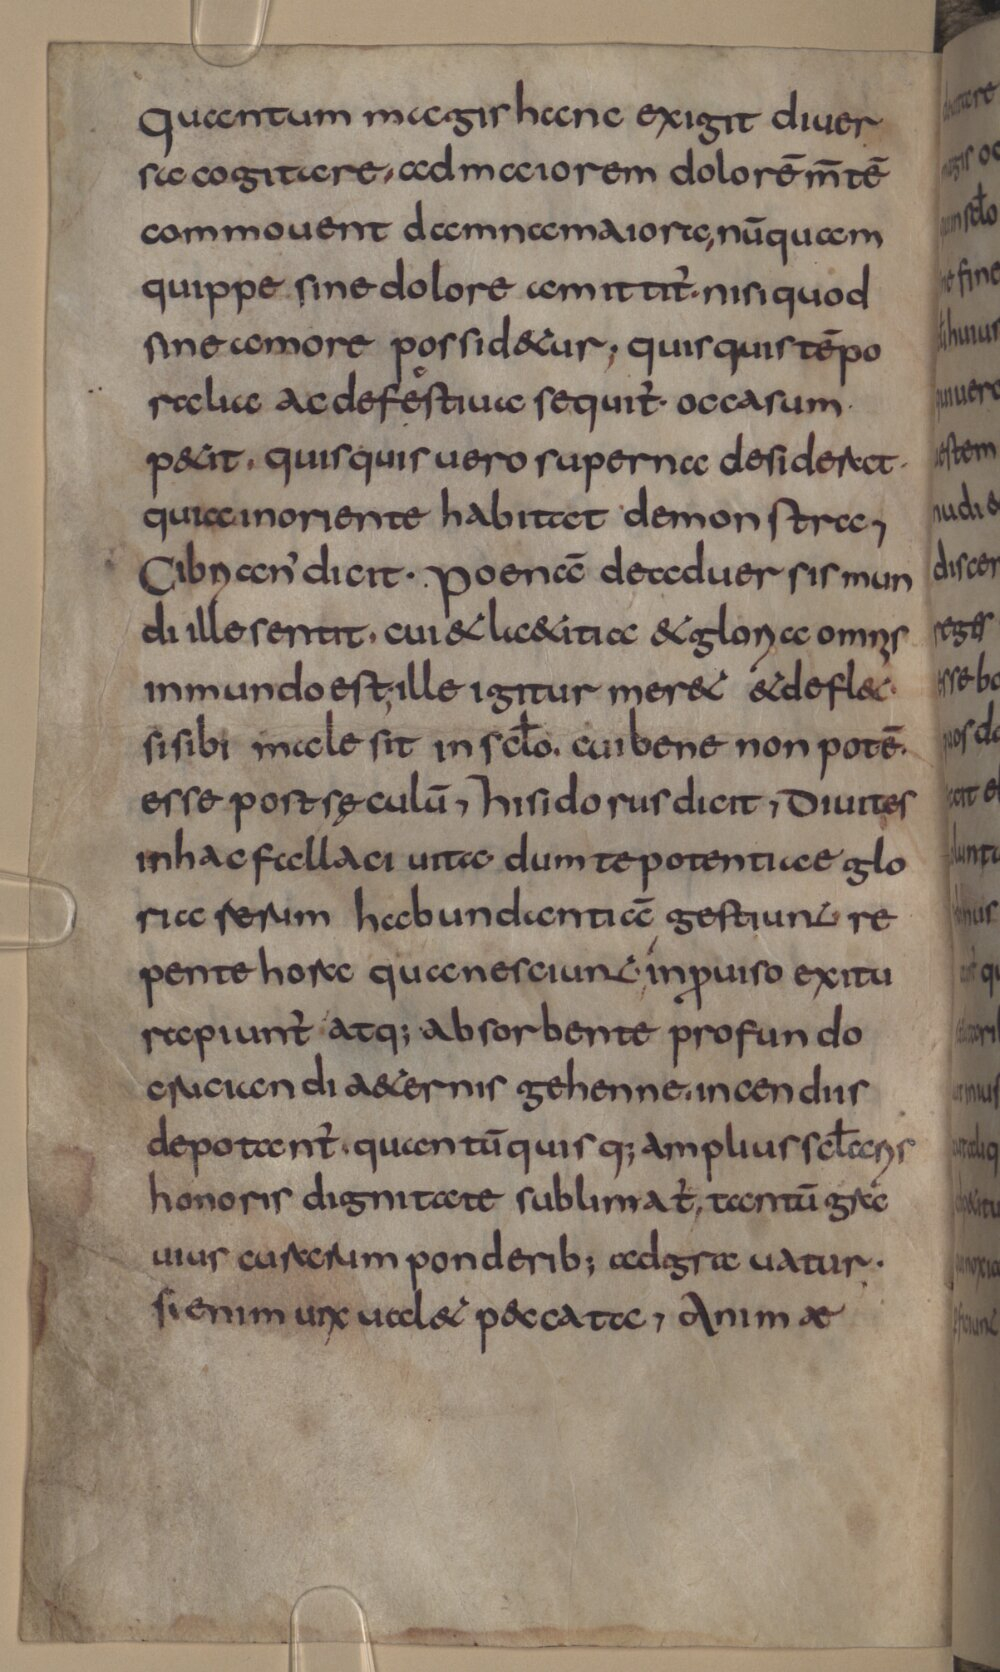 Quantum magis hanc exigit diuer
sa cogitare, ad maiorem dolorē m̄tē
commouent damna maiora, nūquam
quippe sine dolore amittit᷑. nisi quod
sine amore possid&ur; quisquis tēpo
ralia ac defestiua sequit᷑. occasum
p&it. quisquis uero superna desiderat.
quia in oriente habitat demonstra,
Cibrian' dicit. Poenā de aduersis mun
di ille sentit. cui & la&itia & gloria omnis
in mundo est; ille igitur mer& & defl&.
si sibi male sit in sc̄lo. cui bene non potē.
esse post sęculū, hisidorus dicit, Diuites
in hac fallaci uita dum te potentiae glo
ria rerum habundantiā gestiunt re
pente hora qua nesciunt inp̱uiso exitu
rapiunt᷑ atq; absorbente profundo
cruciandi a&ernis gehenne. incendiis
depotant᷑. quantū quisq; amplius sc̄laris
honoris dignitate sublimat᷑, tantū gra
uius curarum ponderib; adgrauatur.
si enim uix ual& p&cata, Animae